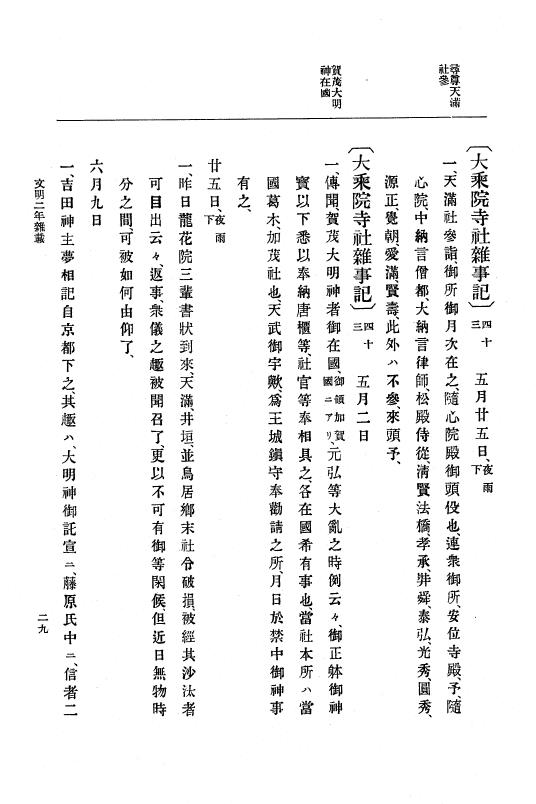 尋尊天滿
社參
賀茂大明
神在國
〔大乘院寺社雜事記〕 四十三 五月廿五日、夜雨下
一、天滿社參詣、御所御月次在之、隨心院殿御頭役也、連衆御所、安位寺殿、予、隨
心院、中納言僧都、大納言律師、松殿侍從、淸賢法橋、孝承、弉舜、泰弘、光秀、圓秀、
源正、覺朝、愛滿、賢壽、此外ハ不參來頭予、
〔大乘院寺社雜事記〕 四十三 五月二日
一、傳聞、賀茂大明神者御在國、御領加賀國ニアリ、元弘等大亂之時例云々、御正躰御神
寶以下悉以奉納唐櫃等、社官等奉相具之、各在國希有事也、當社本所ハ當
國葛木、加茂社也、天武御宇歟、爲王城鎭守奉勸請之所、月日於禁中御神事
有之、
廿五日、夜雨下
一、昨日龍花院三輩書狀到來、天滿、井垣、並鳥居鄕末社令破損、被經其沙汰者
可目出云々、返事、衆儀之趣被聞召了、更以不可有御等閑候、但近日無物時
分之間、可被如何由仰了、
六月九日
一、吉田神主夢相記自京都下之、其趣ハ、大明神御託宣ニ、藤原氏中ニ、信者二
文明二年雜載
二九